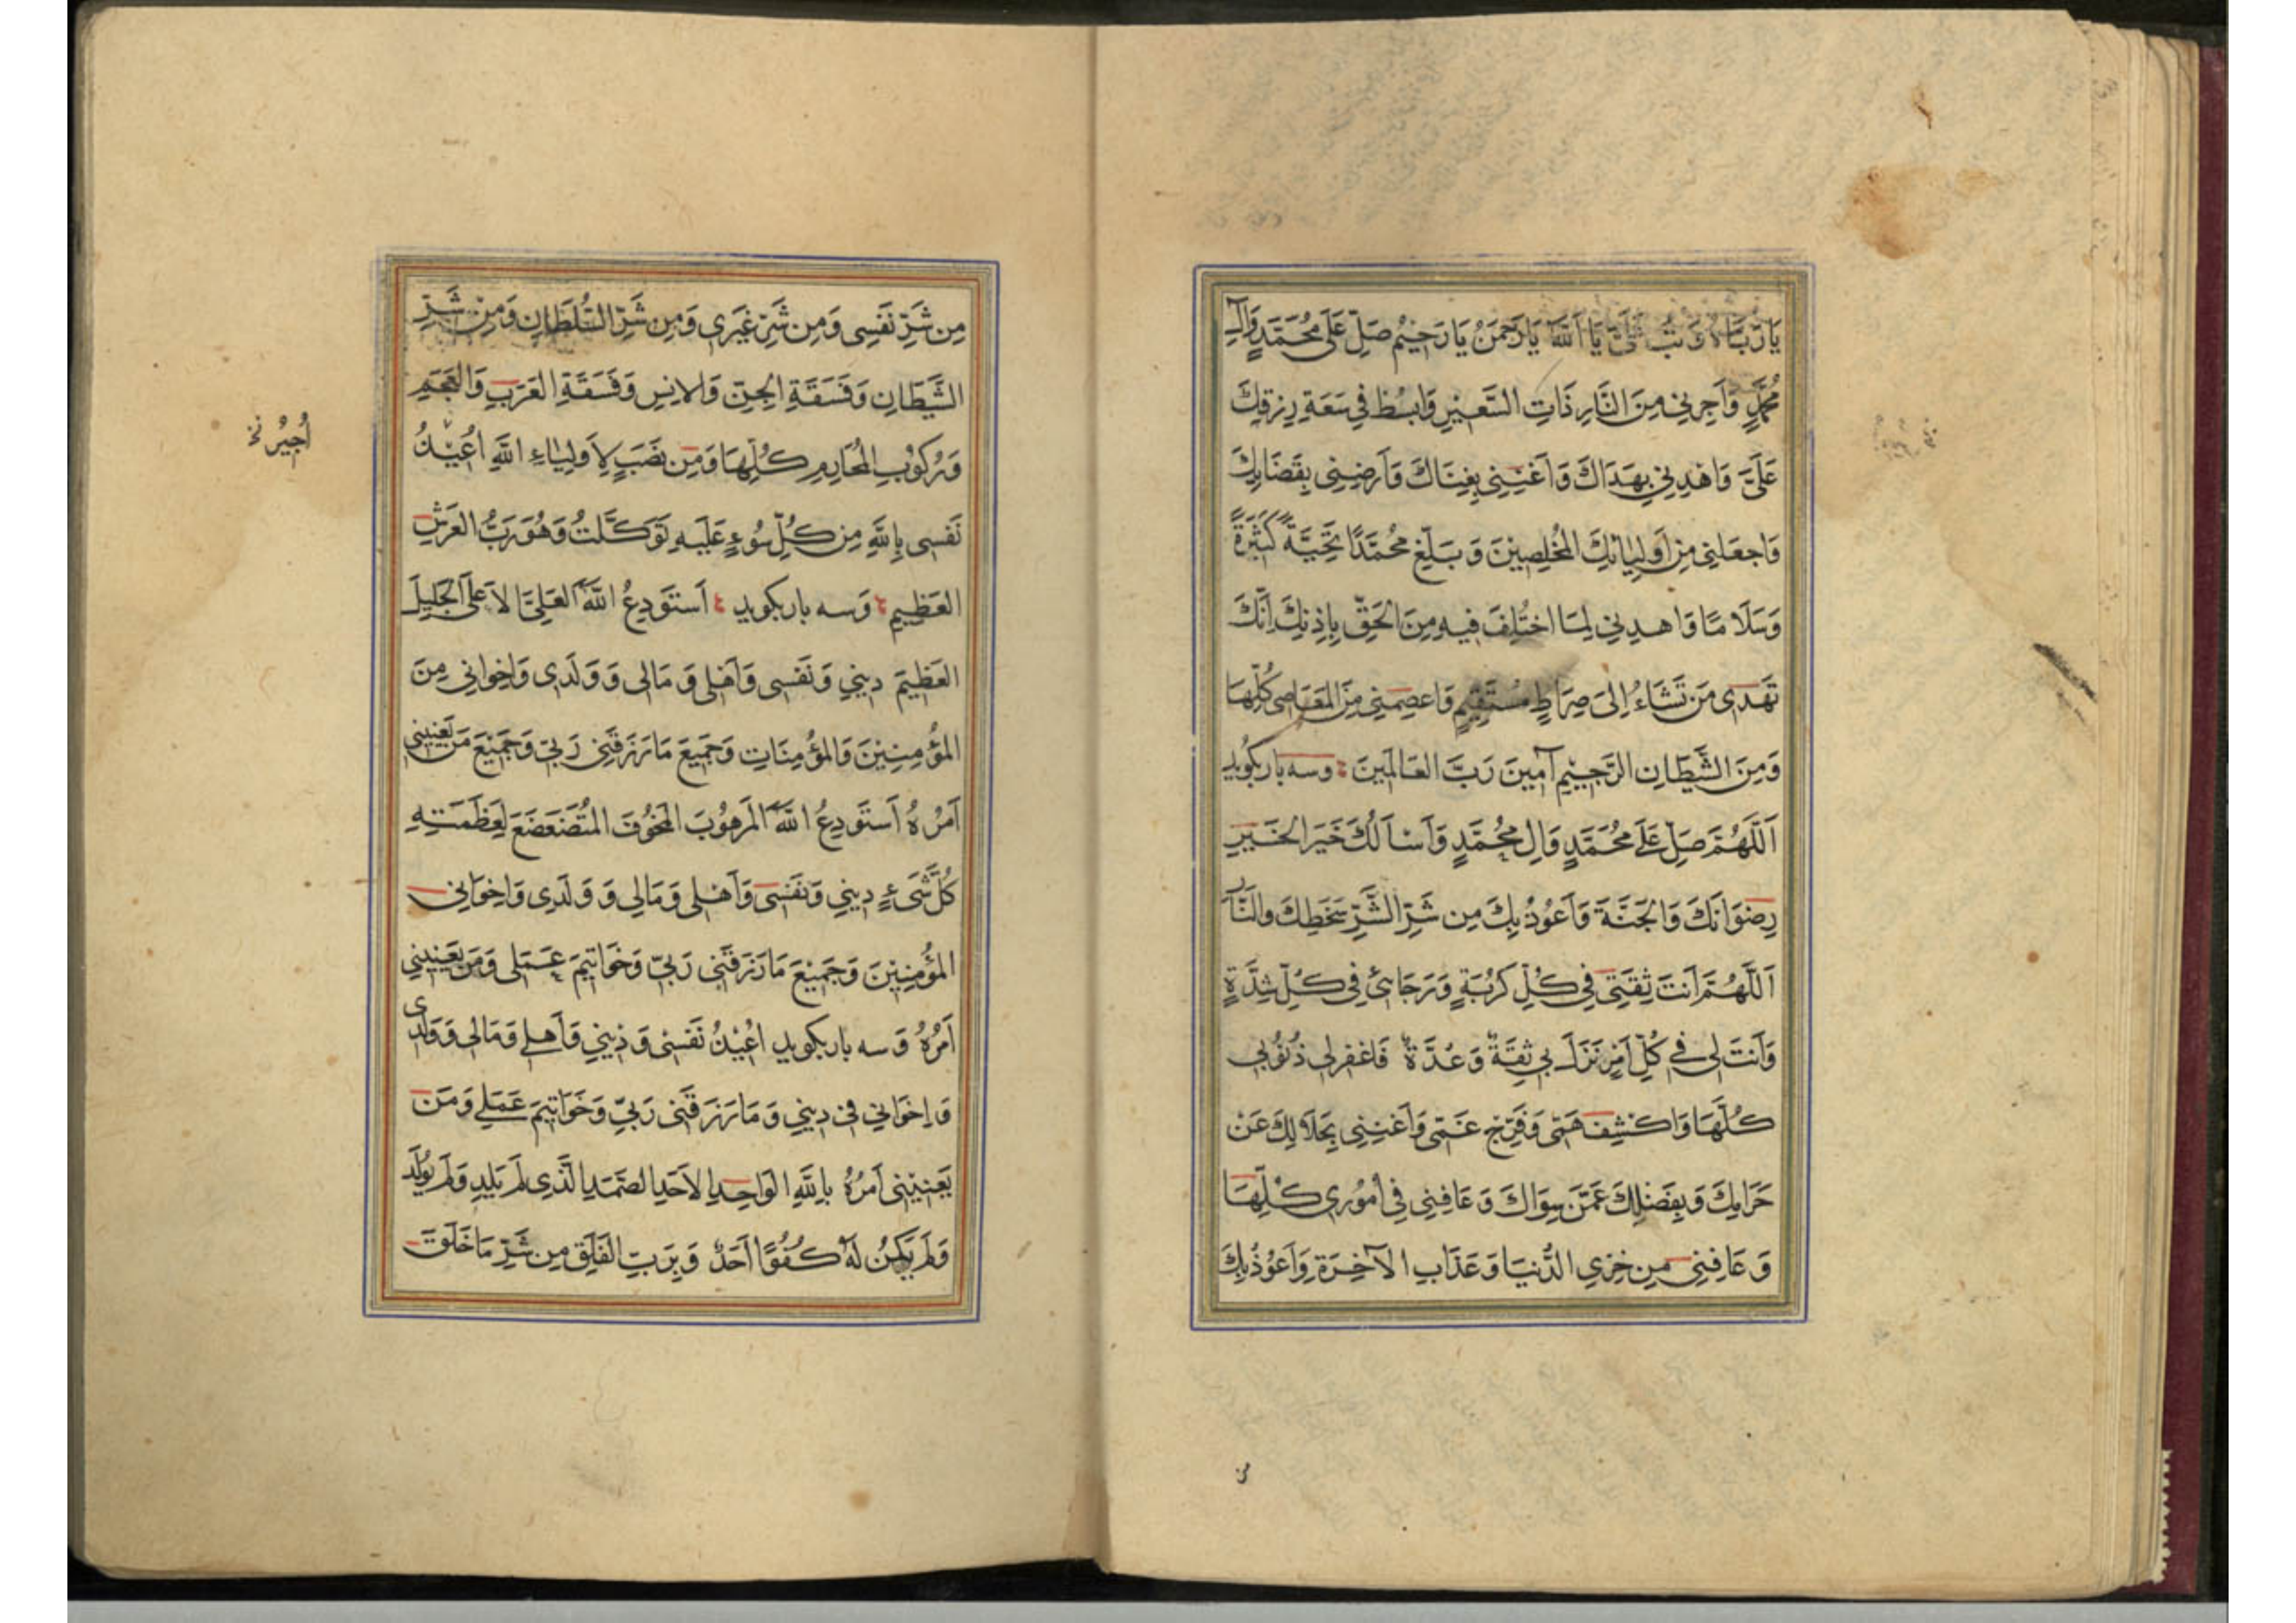 يَا رَبَّاهُ يَا اَللّٰهُ يَا رَحْمٰنُ يَا رَحِيْمُ صَلِّ عَلٰى مُحَمَّدٍ وَاٰلِ
مُحَمَّدٍ وَاَجِرْنِي مِنَ النَّارِ ذَاتِ السَّعِيْرِ وَابْسُطْ فِي سَعَةِ رِزْقِكَ
عَلَيَّ وَاهْدِنِي بِهَدَاكَ وَاَغْنِنِي بِغِنَاكَ وَاَرْضِنِي بِقَضَايِكَ
وَاجْعَلْنِي مِنْ اَوْلِيَائِكَ المُخْلِصِيْنَ وَبَلِّغْ مُحَمَّدًا تَحِيَّةً كَثِيْرَةً
وَسَلَامًا وَاهْدِنِي لِمَا اخْتُلِفَ فِيهِ مِنَ الْحَقِّ بِاِذْنِكَ اِنَّكَ
تَهْدِى مَنْ تَشَاءُ اِلىٰ صِرَاطٍ مُسْتَقِيْمٍ وَاعْصِمْنِي مِنَ المَعَاصِى كُلِّهَا
وَمِنَ الشَّيْطَانِ الرَّجِيْمِ آمِينَ رَبَّ العَالَمِينَ وسه بار بكويد
اَللّٰهُمَّ صَلِّ عَلٰى مُحَمَّدٍ وَاٰلِ مُحَمَّدٍ وَاَسْاَلُكَ خَيْرَ الْخَيْرِ
رِضْوَانَكَ وَالْجَنَّةَ وَاَعُوْذُ بِكَ مِن شَرِّ الشَّرِّ سَخَطِكَ والنَّار
اَللّٰهُمَّ اَنْتَ ثِقَتِى فِي كُلِّ كُرْبَةٍ وَرَجَائِى فِي كُلِّ شِدَّةٍ
وَاَنْتَ لِى فِي كُلِّ اَمْرٍ نَزَلَ بِي ثِقَةٌ وَعُدَّةٌ فَاغْفِرْلِي ذُنُوْبِي
كُلَّهَا وَاكْشِفْ هَمِّى وَفَرِّجْ غَمِّى وَاَغْنِنِي بِحَلَالِكَ عَنْ
حَرَامِكَ وَبِفَضْلِكَ عَمَّنْ سِوَاكَ وَعَافِنِي فِي اُمُوْرِي كُلِّهَا
وَعَافِنِي مِنْ خِزْيِ الدُّنْيَا وَعَذَابِ الآخِرَةِ وَاَعُوْذُ بِكَ
مِن شَرِّ نَفْسِى وَمِن شَرِّ غَيْرِى وَمِن شَرِّ السُّلْطَانِ وَمِنْ شَرِّ
الشَّيْطَانِ وَفَسَقَةِ الْجِنِّ وَالاِنْسِ وَفَسَقَةِ العَرَبِ وَالعَجَمِ
وَرُكُوْبِ المَحَارِمِ كُلِّهَا وَمِن نَصَبٍ لِاَوْلِيَاءِ اللّٰهِ اُعِيْذُ
اُجِيْرُ نخ
نَفْسِى بِاللّٰهِ مِن كُلِّ سُوْءٍ عَلَيْهِ تَوَكَّلْتُ وَهُوَ رَبُّ العَرْشِ
العَظِيمِ وَسه بار بكويد اَسْتَوْدِعُ اللّٰهَ العَلِيَّ الاَعْلَى الجَلِيلَ
العَظِيمَ دِينِي وَنَفْسِى وَاَهْلِى وَمَالِى وَوَلَدِى وَاِخْوَانِي مِنَ
المُؤْمِنِينَ وَالمُؤْمِنَاتِ وَجَمِيعَ مَا رَزَقَنِي رَبِّي وَجَمِيْعَ مَنْ يَعْنِينِي
اَمْرُهُ اَسْتَوْدِعُ اللّٰهَ المَرْهُوْبَ المَخُوْفَ المُتَضَعْضَعَ لِعَظَمَتِهِ
كُلُّ شَىْءٍ دِينِي وَنَفْسِى وَاَهْلِى وَمَالِي وَوَلَدِى وَاِخْوَانِي
المُؤْمِنِيْنَ وَجَمِيْعَ مَا رَزَقَنِي رَبِّي وَخَوَاتِيْمَ عَمَلِى وَمَنْ يَعْنِينِي
اَمْرُهُ وَسه بار بكويد اُعِيْذُ نَفْسِى وَدِيْنِي وَاَهلِي وَمَالِى وَوَلَدِى
وَاِخْوَانِي فِي دِيْنِي وَمَا رَزَقَنِي رَبِّي وَخَوَاتِيْمَ عَمَلِي وَمَنْ
يَعْنِيْنِي اَمْرُهُ بِاللّٰهِ الوَاحِدِ الاَحَدِ الصَّمَدِ الَّذِى لَمْ يَلِدْ وَلَمْ يُوْلَدْ
وَلَمْ يَكُنْ لَهُ كُفُوًا اَحَدٌ وَبِرَبِّ الفَلَقِ مِن شَرِّ مَا خَلَقَ